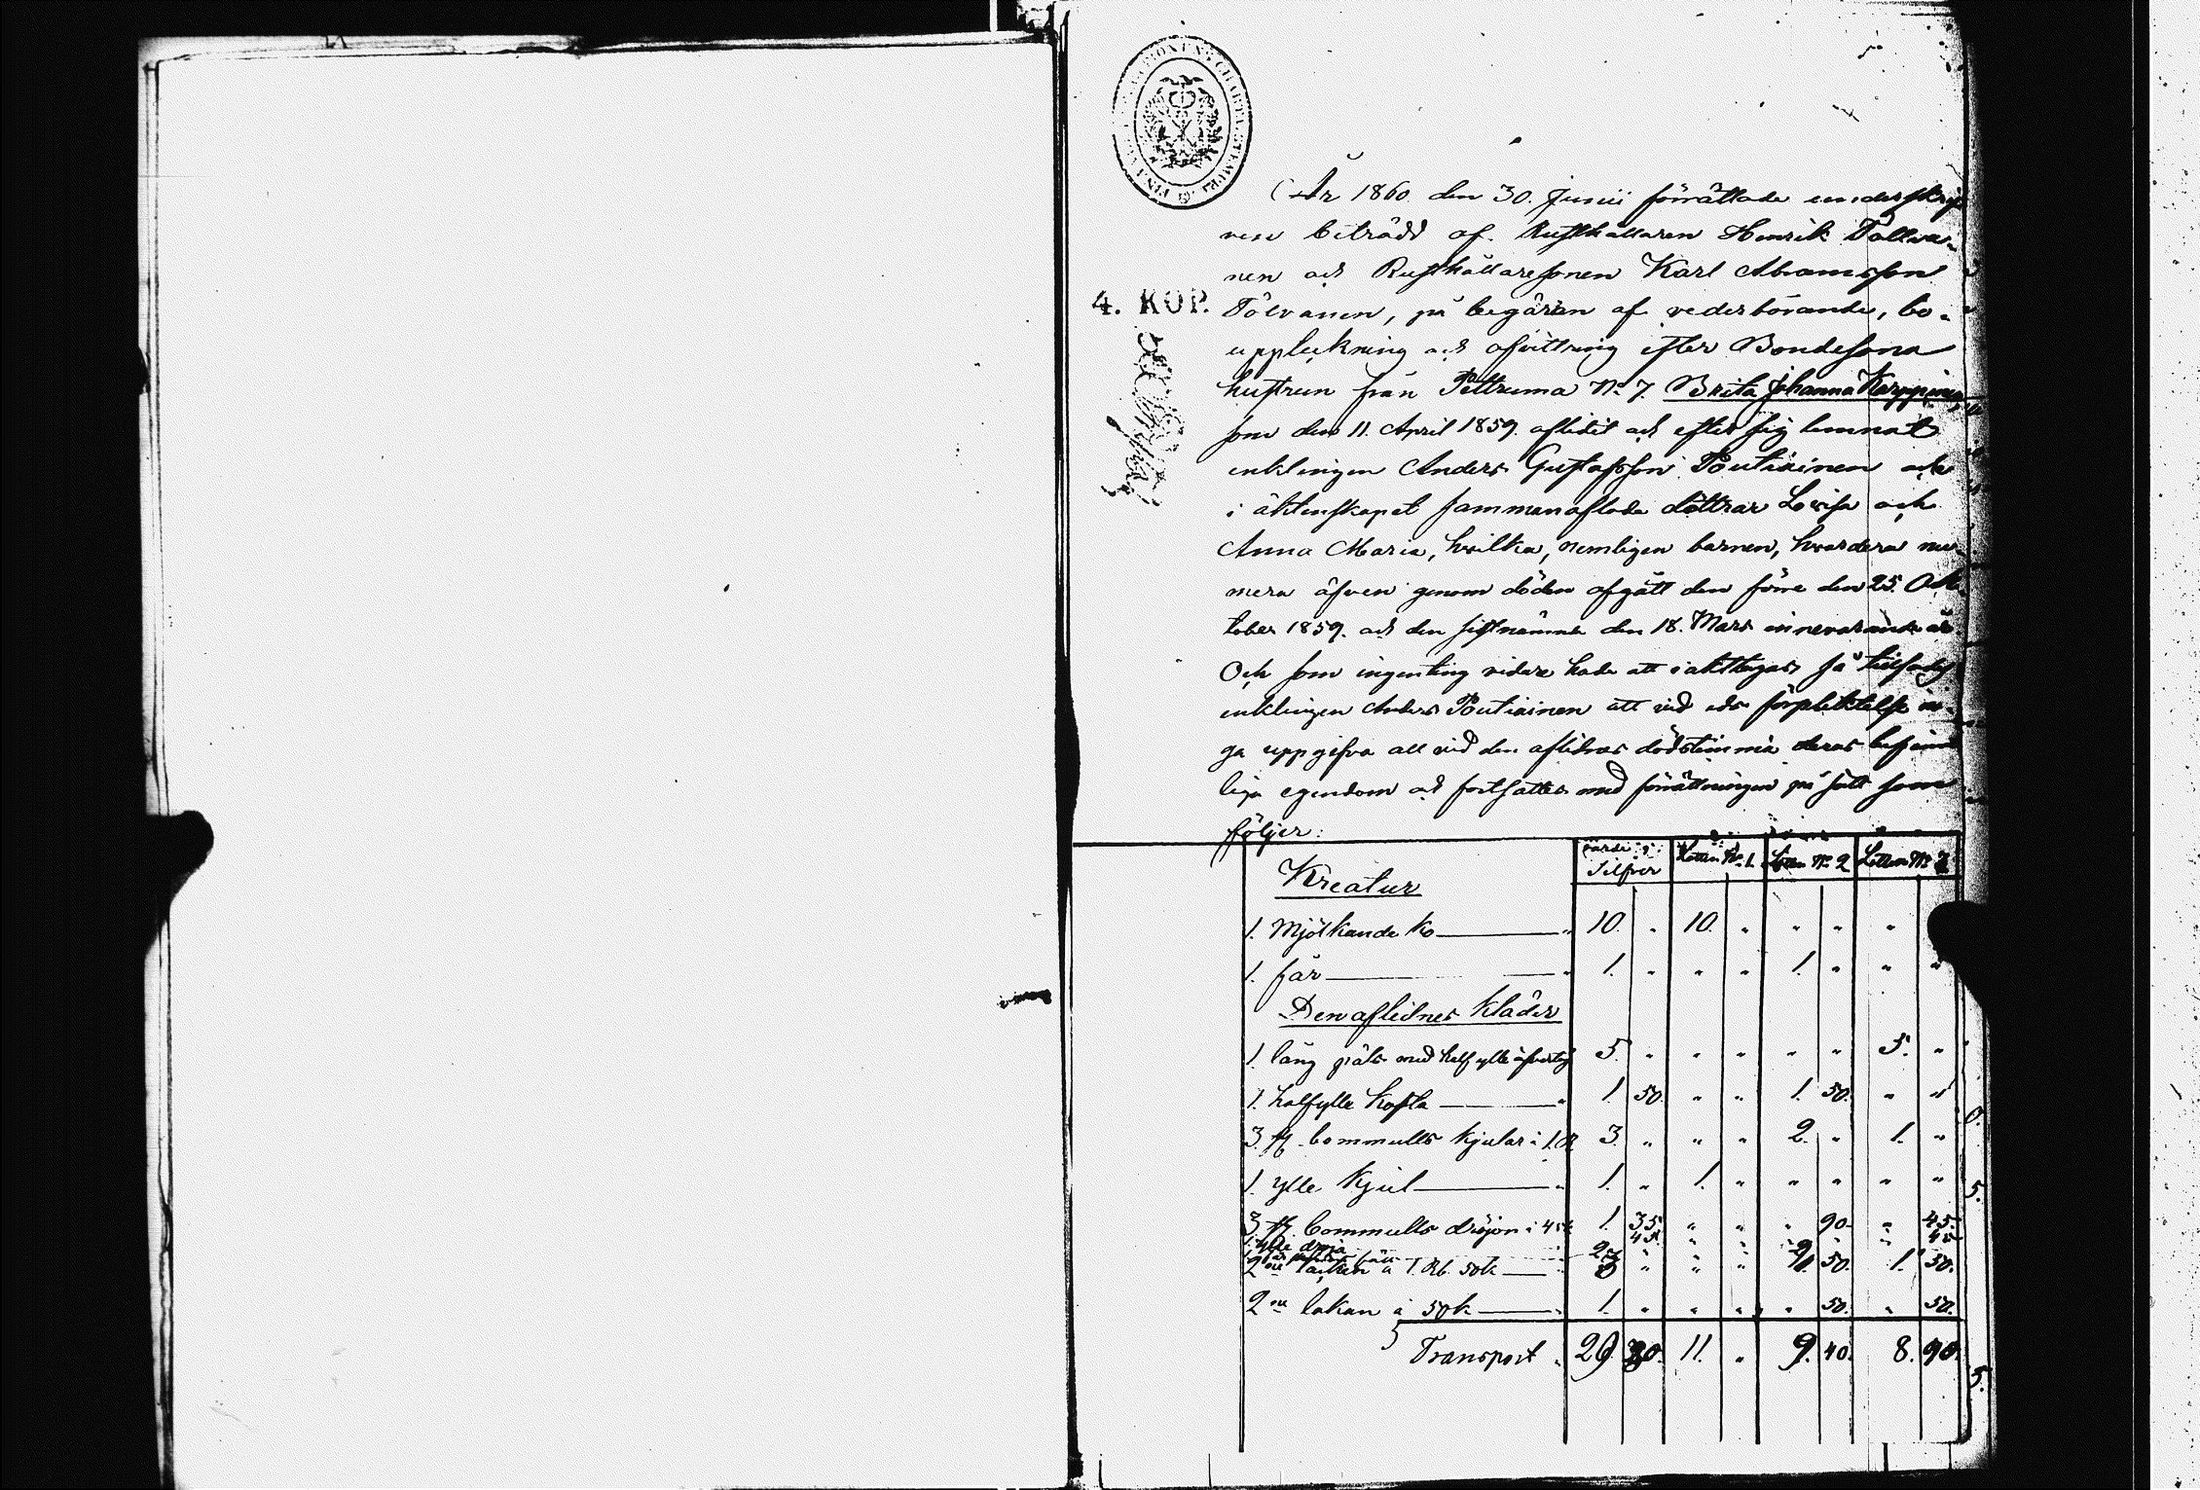 År 1860 den 30. Junii förrättade underskrif
ven biträdd af Rusthållaren Henrik Tolva-
nen och Rusthållaresonen Karl Abramsson
4. KOP. Tolvanen, på begäran af vederbörande, bo-
uppteckning och afvittring efter Bondesona
hustrun från Peltruma No 7. Brita Johanna Karppinen,
som den 11. April 1859. aflidit och efter sig lemnat
enklingen Anders Gustafsson Poutiainen och
i äktenskapet sammanaflade döttrar Lovisa och
Anna Maria, hvilka, nemligen barnen, hvardera nu-
mera äfven genom döden afgått den förre den 25. Ok-
tober 1859. och den sistnämnde den 18. Mars innevarande år.
Och som ingenting vidare hade att iakttagas, så tillsades
enklingen Anders Poutiainen att vid eds förpliktelse
ga uppgifva all vid den aflidnas dödstimma deras befint
liga egendom och fortsattes med förrättningen på sätt som
följer:
Värde i Silfver Lotten No 1. Lotten No 2 Lotten No 3
Kreatur
1. Mjölkande ko 10. " 10. " " " "
1. får 1. " " " 1. " " "
Den aflidnes Kläder
1. lång päls med halfylle 5. " " " " " 5. "
1. halfylle Kofta 1. 50. " " 1. 50. " "
3. st. bommulls kjolar à 1. R. 3. " " " 2. " 1. "
1. ylle Kjol 1. " 1. " " " " "
3 st. bommulls dröjor à 45 k 1. 35. " " " 90. " 45.
1. ylle dröja 45. " " " " 45
2 à 1. Rb. 50 k " " " 50. 1. 50.
2 lakan à 50 k 1. " " " " 50. " 50.
Transport 29. 30. 11. " 9. 40. 8. 90.